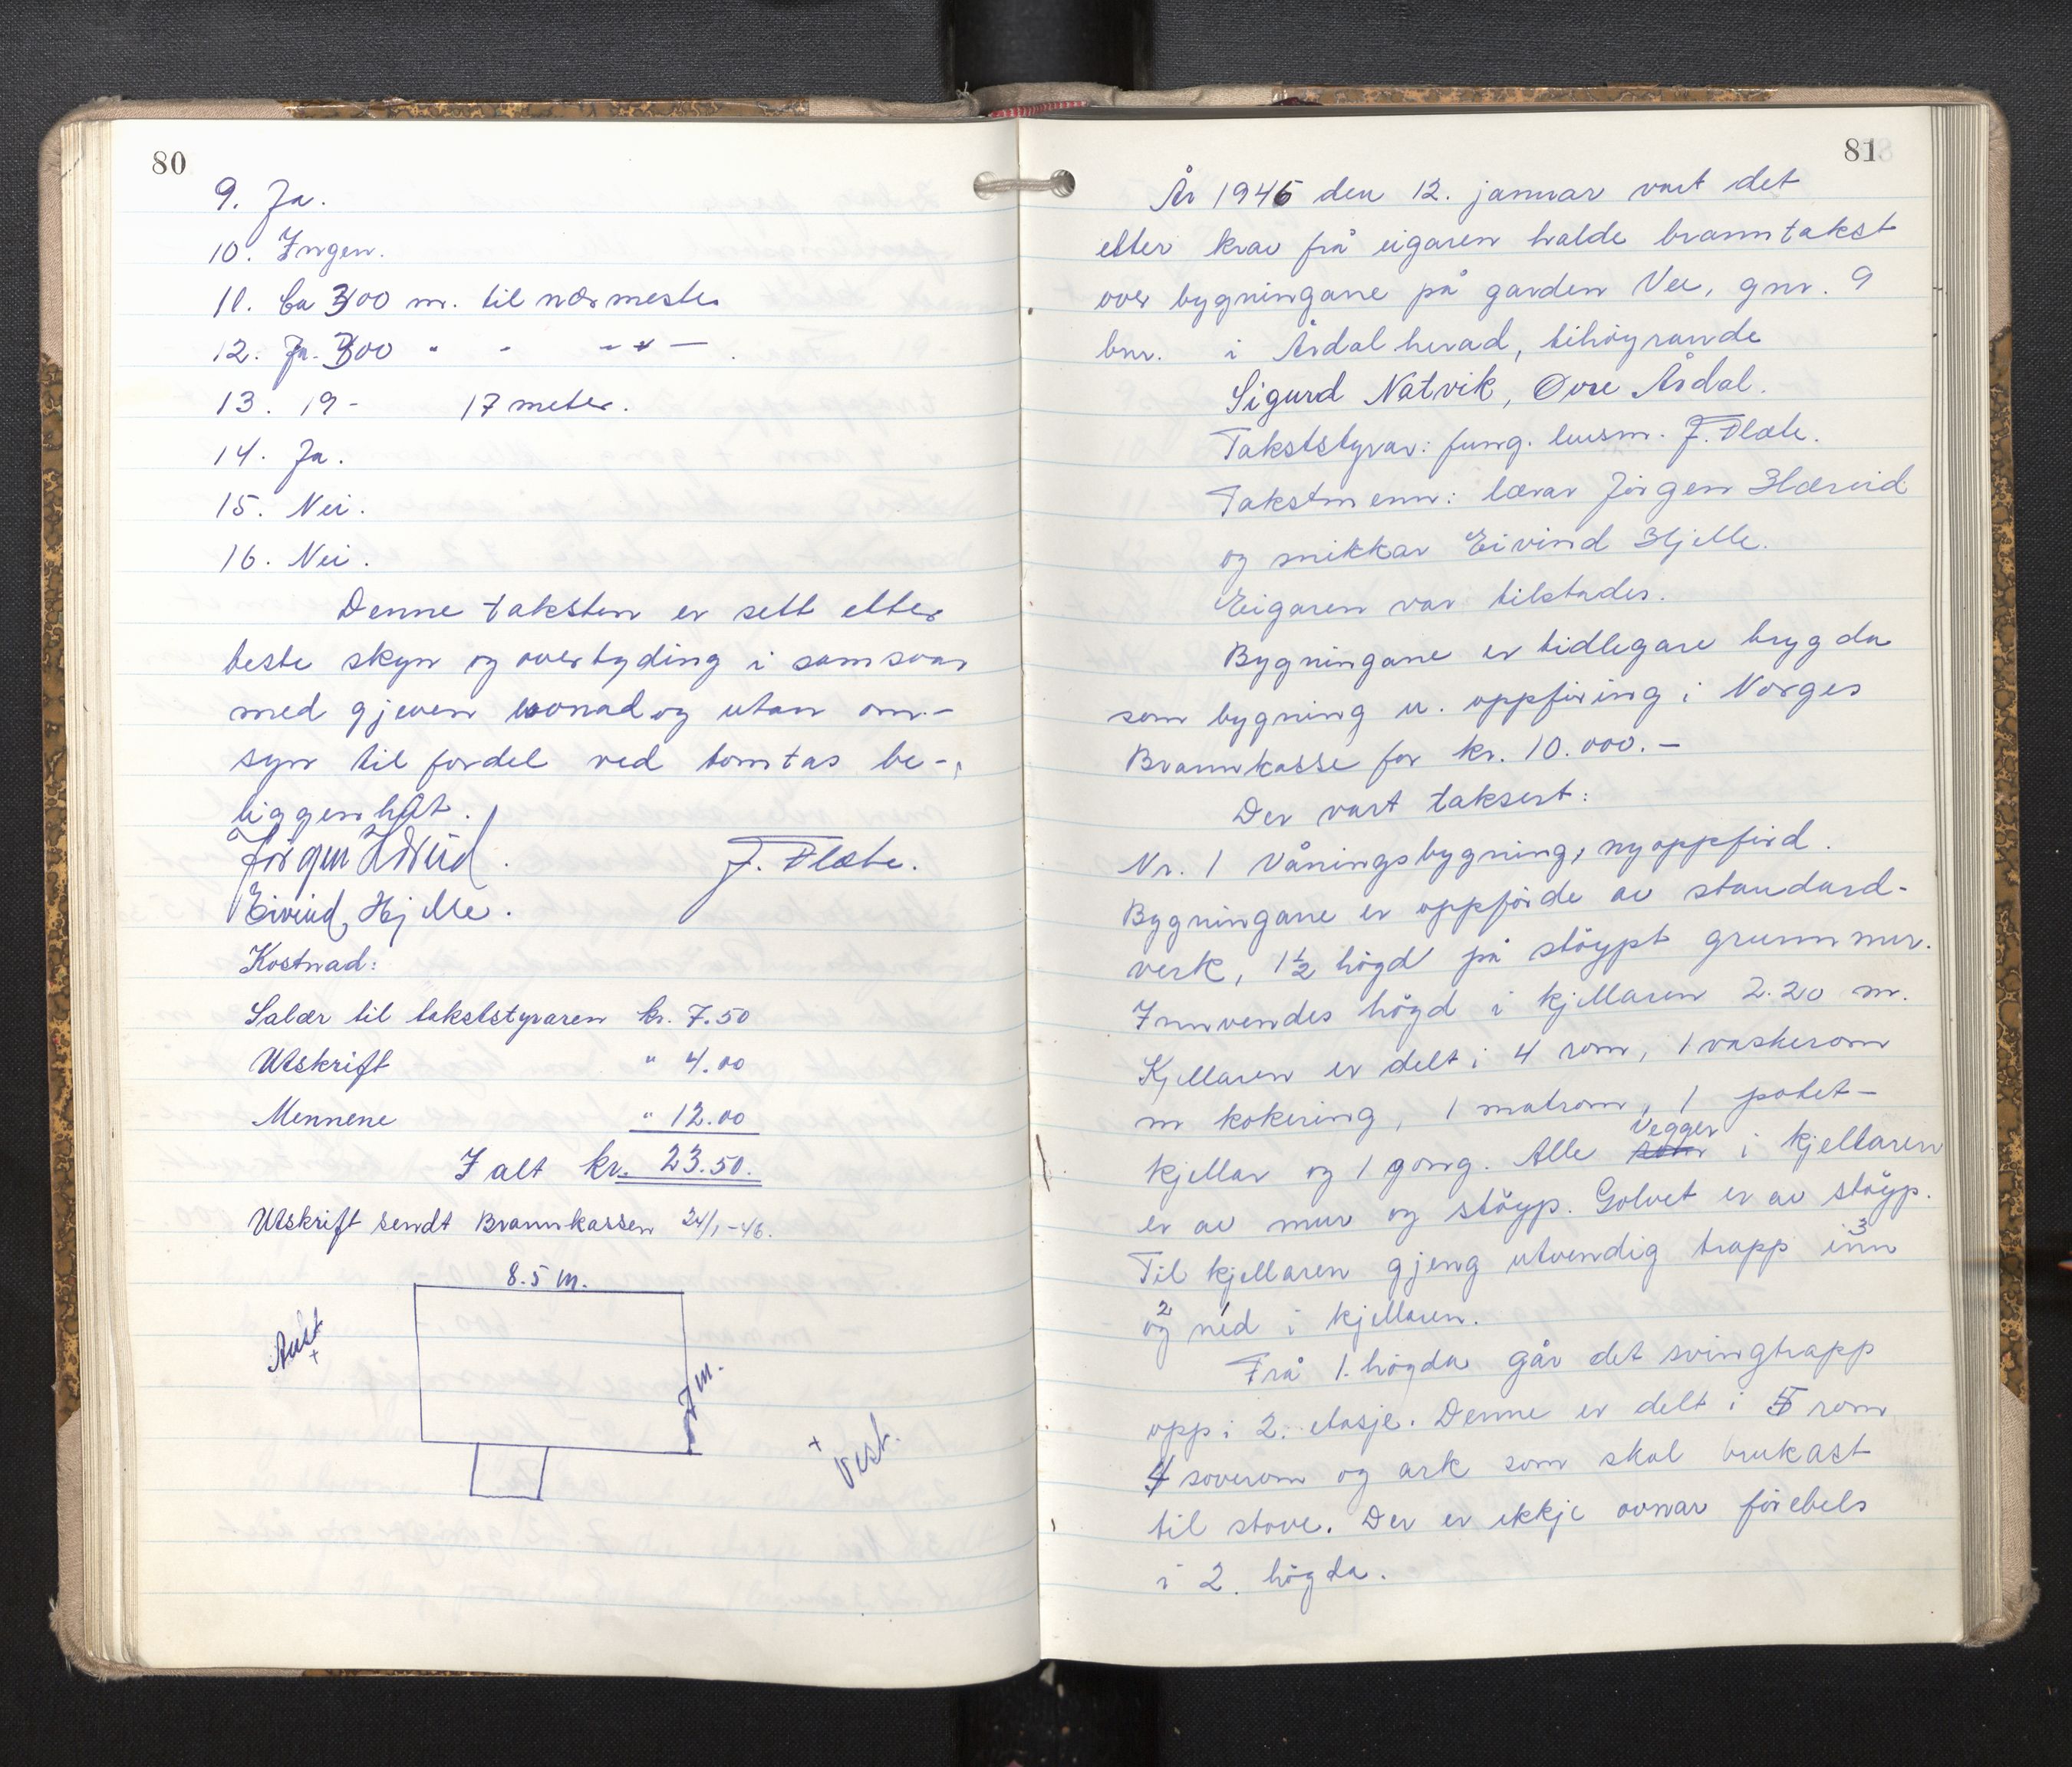 80
9. Ja.
10. Ingen.
11. Ca 300 m. til nærmeste
12. Ja. 300 " - - " - .
13. 19 - 17 meter.
14. Ja.
15. Nei.
16. Nei.
Denne taksten er sett etter
beste skyn og overtyding i samsvar
med gjeven lovnad og utan om-
syn til fordel ved tomtas be-
liggenhet.
Jørgen Hæreid. J. Flæte.
Eivind Hjelle.
Kostnad:
Salær til takststyraren kr. 7.50
Utskrift " 4.00
Mennene " 12.00
I alt kr. 23.50.
Utskrift sendt Brannkassen 24/1-46.
8.5 m.
Aust
+
7 m.
+
Vest.
81
År 1946 den 12. januar vart det
etter krav frå eigaren halde branntakst
over bygningane på garden Vee, gnr. 9
bnr. i Årdal herad, tilhøyrande
Sigurd Natvik, Øvre Årdal.
Takststyrar: fung. lensm. J. Flæte.
Takstmenn: lærar Jørgen Hæreid
og snikkar Eivind Hjelle.
Eigaren var tilstades.
Bygningane er tidlegare trygda
som bygning u. oppføring i Norges
Brannkasse for kr. 10.000.-
Der vart taksert:
Nr. 1 Våningsbygning, nyoppførd.
Bygningane er oppførde av standard-
verk, 1½ høgd på støypt grunnmur.
Innvendes høgd i kjellaren 2.20 m.
Kjellaren er delt i 4 rom, 1 vaskerom
m kokering, 1 matrom, 1 potet-
kjellar og 1 gong. Alle Vegger i kjellaren
er av mur og støyp. Golvet er av støyp.
Til kjellaren gjeng utvendig trapp inn 3
2 og ned i kjellaren.
Frå 1. høgda går det svingtrapp
opp i 2. etasje. Denne er delt i 5 rom
4 soverom og ark som skal brukast
til stove. Der er ikkje ovnar førebels
i 2. høgda.